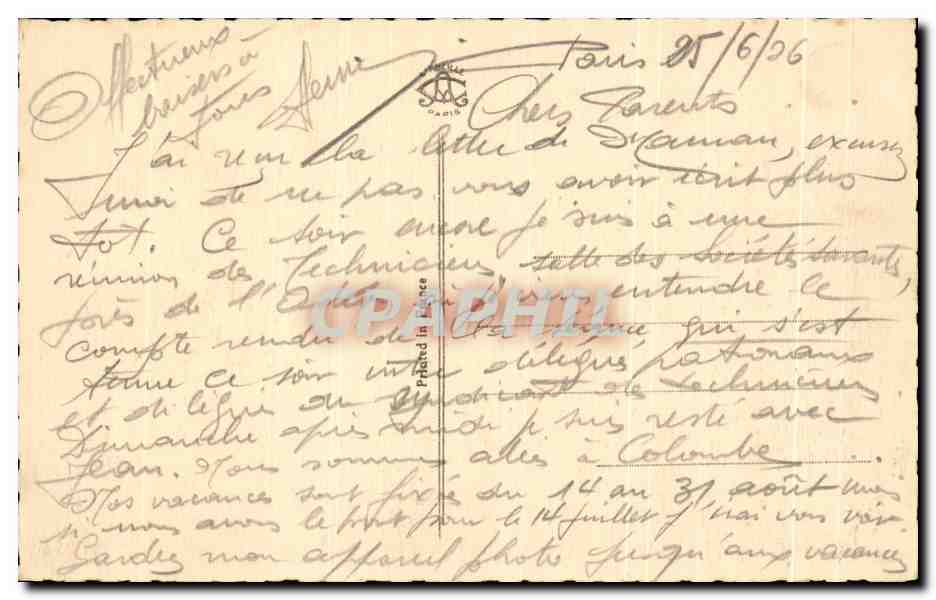 Paris 25/6/36
Chers Parents
J'ai reçu la lettre de Maman, excusez
moi de ne pas vous avoir écrit plus
tôt. Ce soir encore je suis à une
réunion des Techniciens, salle des Sociétés Savantes,
près de l'Odéon où j'irai entendre le
compte rendu de la réunion qui s'est
tenue ce soir entre délégués patronaux
et délégués du syndicat des techniciens
Dimanche après midi je suis resté avec
Jean. Nous sommes allés à Colombe
Mes vacances sont fixées du 14 au 31 août mais
si nous avons le pont pour le 14 juillet j'irai vous voir
Gardez mon appareil photo jusqu'aux vacances
Affectueux
baisers à
tous
PARIS
Printed in France
CPAPHIL